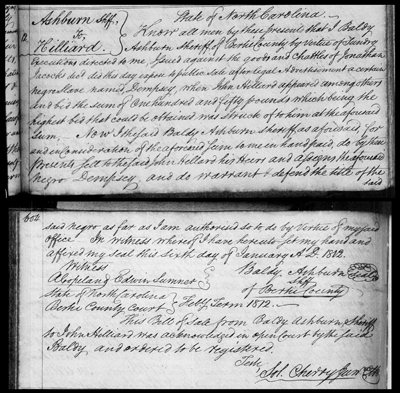 Ashburn Shff,
To,
Hilliard.
12
State of North Carolina.
Know all men by these presents that I Baldy
Ashburn Sheriff of Bertie County by Vertue of Sundry
executions directed to me, Issued against the goods and Chattles of Jonathan
Jacocks did this day expose to publick sale after legal Advertisement a certain
negro Slave named Dempsey, when John Hilliard appeared among others
and bid the sum of One hundred and fifty pounds which being the
highest bid that could be obtained was Struck off to him at the aforesaid
Sum, Now I the said Baldy Ashburn sheriff as aforesaid, for
and in consideration of the aforesaid Sum to me in hand paid, do by these
Presents sell to the said John Hilliard his heirs and assigns the aforesaid
negro Dempsey, and do warrant & defend the title of the
said
602
said negro, as far as I am authorised so to do by Vertue of my said
office In witness whereof I have hereunto set my hand and
affixed my seal this sixth day of January A.D. 1812.
Witness
Baldy Ashburn
A Copeland Edwin Sumner
Shff
of Bertie County
State of North Carolina
Bertie County Court
Feby Term 1812.
This Bill of Sale from Baldy Ashburn, Sheriff
to John Hilliard was acknowledged in open Court by the said
Baldy, and ordered to be registered.
Teste
Sol. Cherry Junr Clk